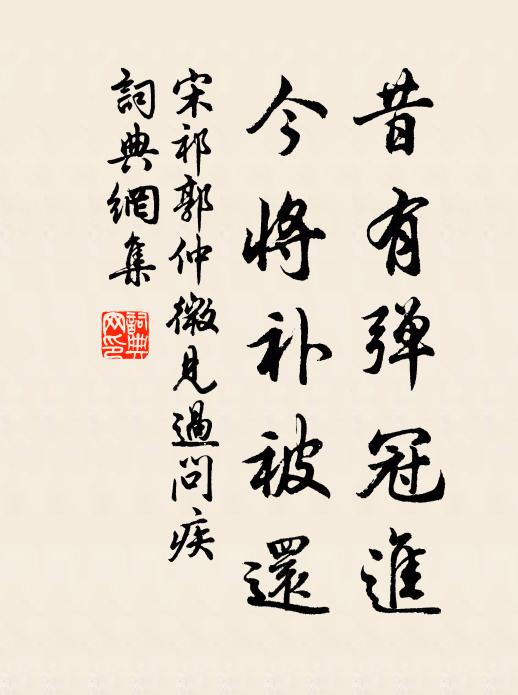 昔有弹冠進
今將补被還
宋祁郭仲微見過問疾
詞典網集
詞典网印